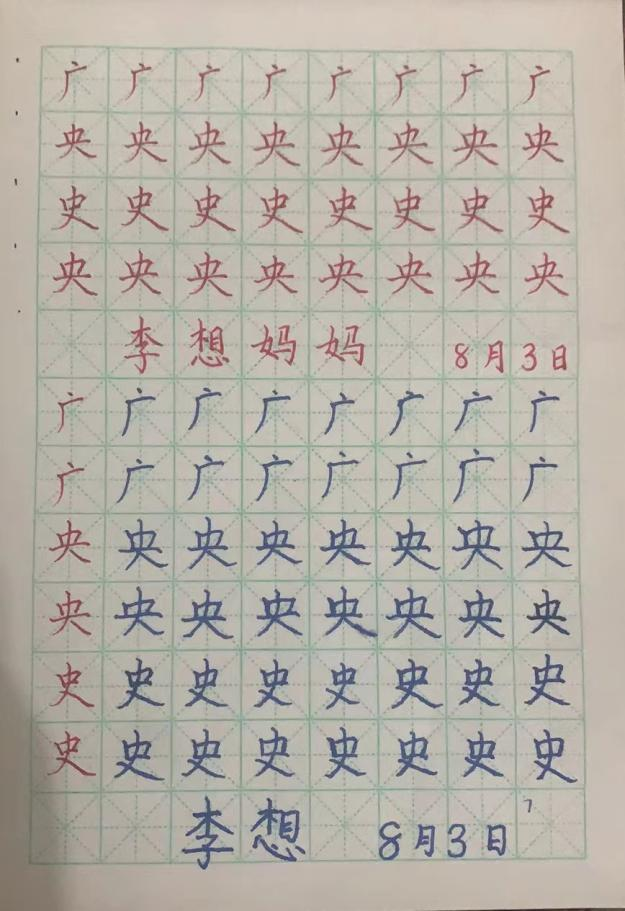 广广广广广广广广
央央央央央央央央
史史史史史史史史
央央央央央央央央
李想妈妈 8月3日
广广广广广广广广
广广广广广广广广
央央央央央央央央
央央央央央央央央
史史史史史史史史
史史史史史史史史
李想 8月3日